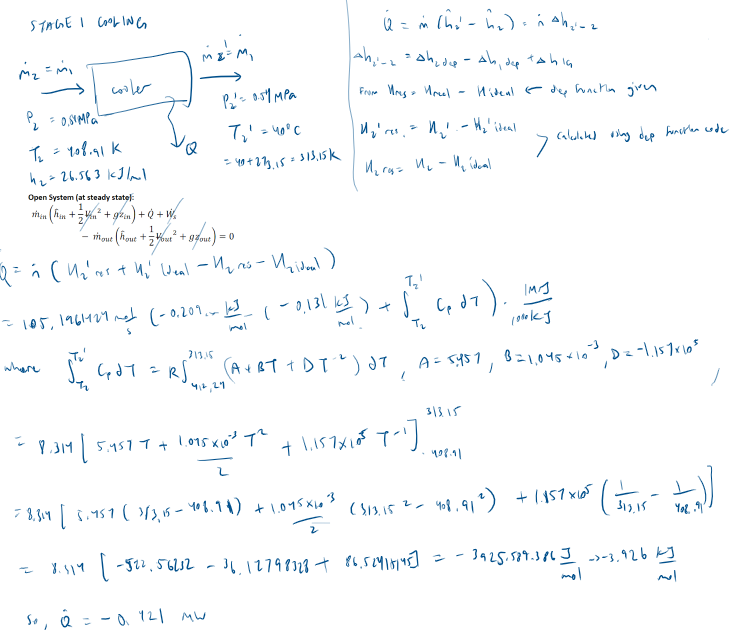 STAGE 1 COOLING
ṁ₂ = ṁ₁
cooler
ṁ₂' = ṁ₁
P₂ = 0.54MPa
T₂ = 408.91 K
h₂ = 26.563 kJ/mol
Q̇
P₂' = 0.54 MPa
T₂' = 40°C
= 40+273.15 = 313.15K
Q̇ = ṁ (ĥ₂' - ĥ₂) = ṅ Δh₂'-₂
Δh₂'-₂ = Δh₂ dep - Δh₁ dep + Δh IG
From Hres = Hreal - Hideal ← dep function given
H₂' res. = H₂' - H₂' ideal
H₂ res = H₂ - H₂ ideal
calculated using dep function code
Open System (at steady state):
ṁin (ĥin + 1/2 Vin² + gzin) + Q̇ + Ẇs
- ṁout (ĥout + 1/2 Vout² + gzout) = 0
Q̇ = ṅ (H₂' res + H₂' ideal - H₂ res - H₂ ideal)
= 105.1961429 mol/s (-0.209.. kJ/mol - (-0.131 kJ/mol) + ∫T₂→T₂' Cp dT) · 1MJ/1000kJ
where ∫T₂→T₂' Cp dT = R ∫412.29→313.15 (A + BT + DT⁻²) dT, A = 5.457, B = 1.045×10⁻³, D = -1.157×10⁵
= 8.314 [5.457 T + 1.045×10⁻³/2 T² + 1.157×10⁵ T⁻¹] 408.91→313.15
= 8.314 [5.457 (313.15 - 408.91) + 1.045×10⁻³/2 (313.15² - 408.91²) + 1.157×10⁵ (1/313.15 - 1/408.91)]
= 8.314 [-522.56232 - 36.12798328 + 86.52415145] = -3925.589.386 J/mol → -3.926 kJ/mol
So, Q̇ = -0.421 MW